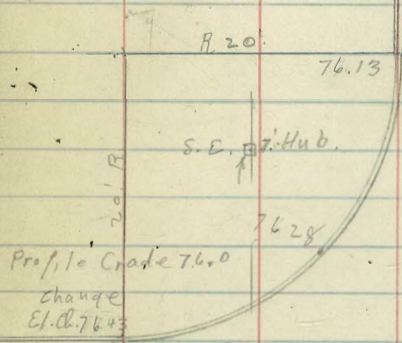 R 20'
76.13
S.E. 7' Hub.
20' R
76 28
Profile Grade 76.0
change
El. Ch. 76.43